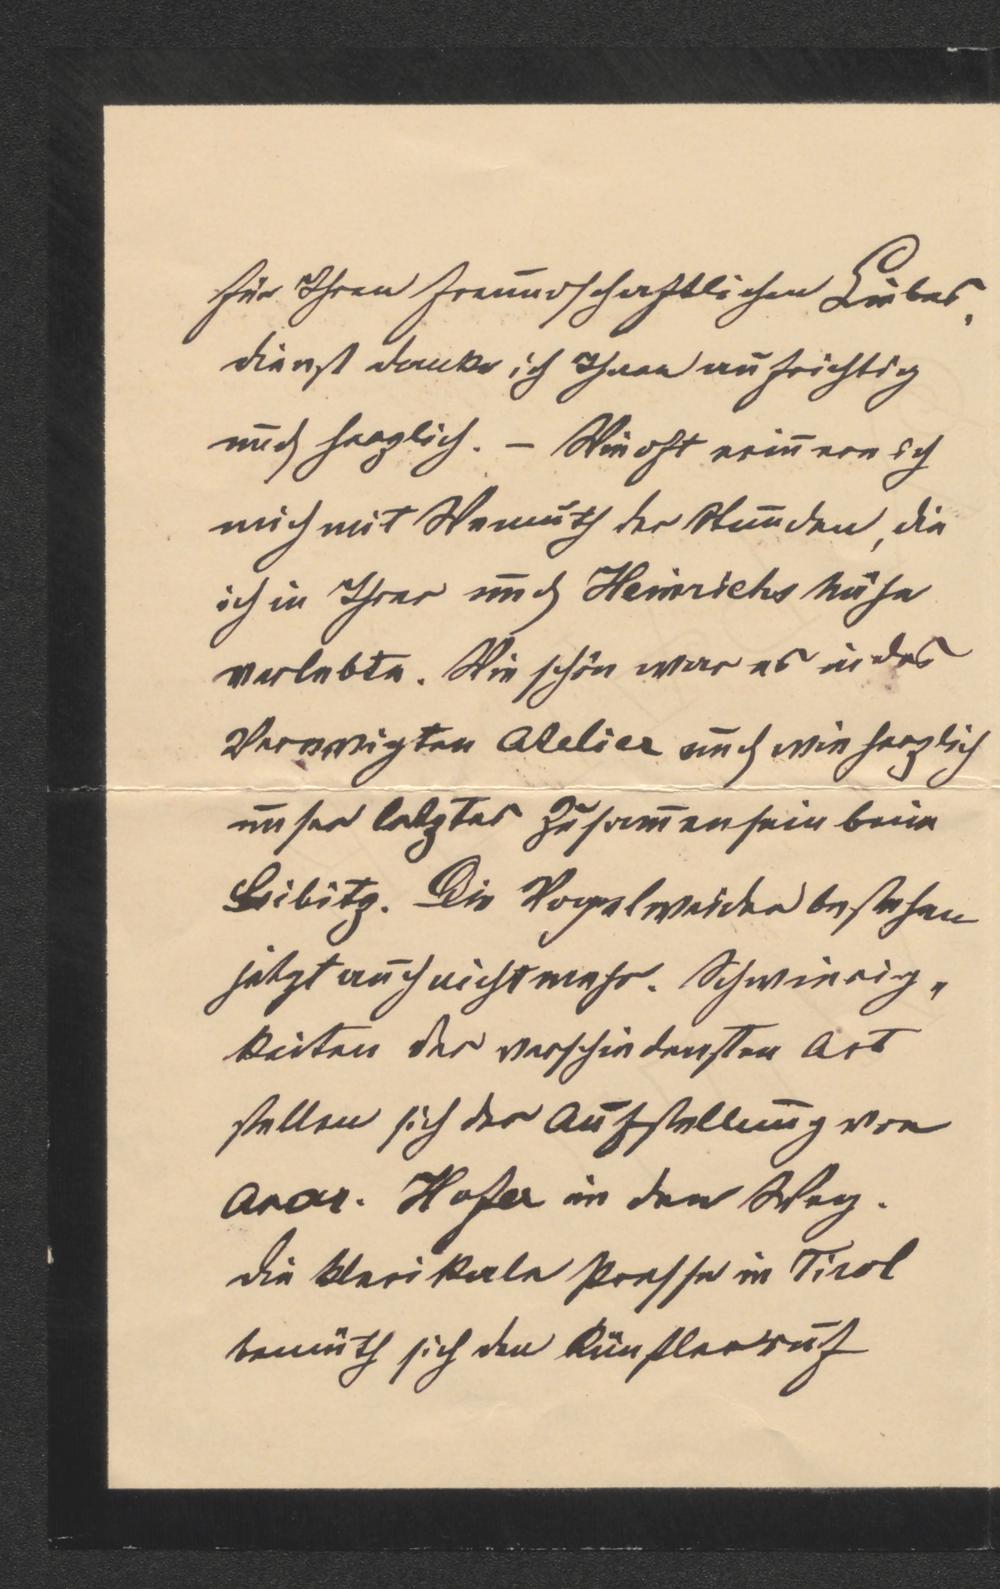 für Ihren freundschaftlichen Liebes„
dienst danke ich Ihnen aufrichtig
und herzlich. – Wie oft erinnere ich
mich mit Wemuth der Stunden, die
ich in Ihrer und Heinrichs Nähe
verlebte. Wie schön war es in des
Verewigten Atelier und wie herzlich
unser letztes Zusammensein beim
Leibitz. Die Vogelweider bestehen
jetzt auch nicht mehr. Schwierig„
keiten der verschiedensten Art
stellen sich der Aufstellung von
Hofer in den Weg.
die klerikale Presse in Tirol
bemüth sich den Künstlerruf